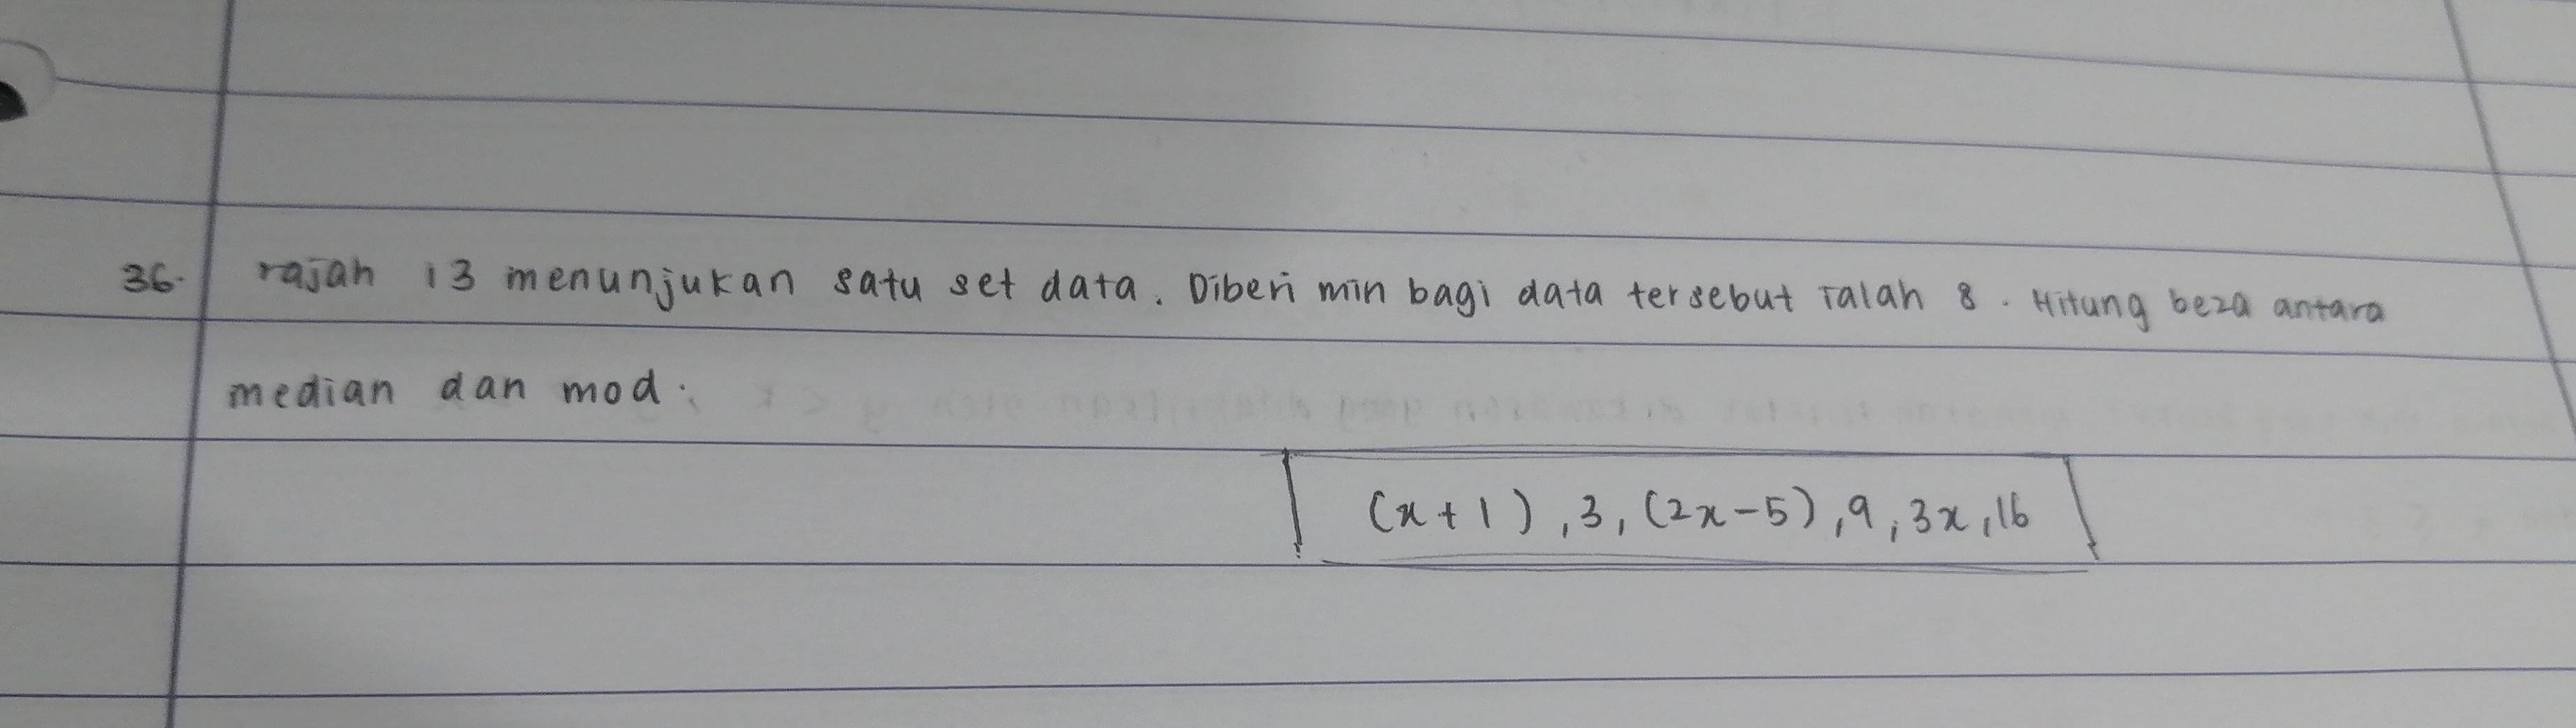 36. rajah 13 menunjukan satu set data. Diberi min bagi data tersebut ialah 8. Hitung beza antara
median dan mod.
(x+1), 3, (2x-5), 9, 3x, 16